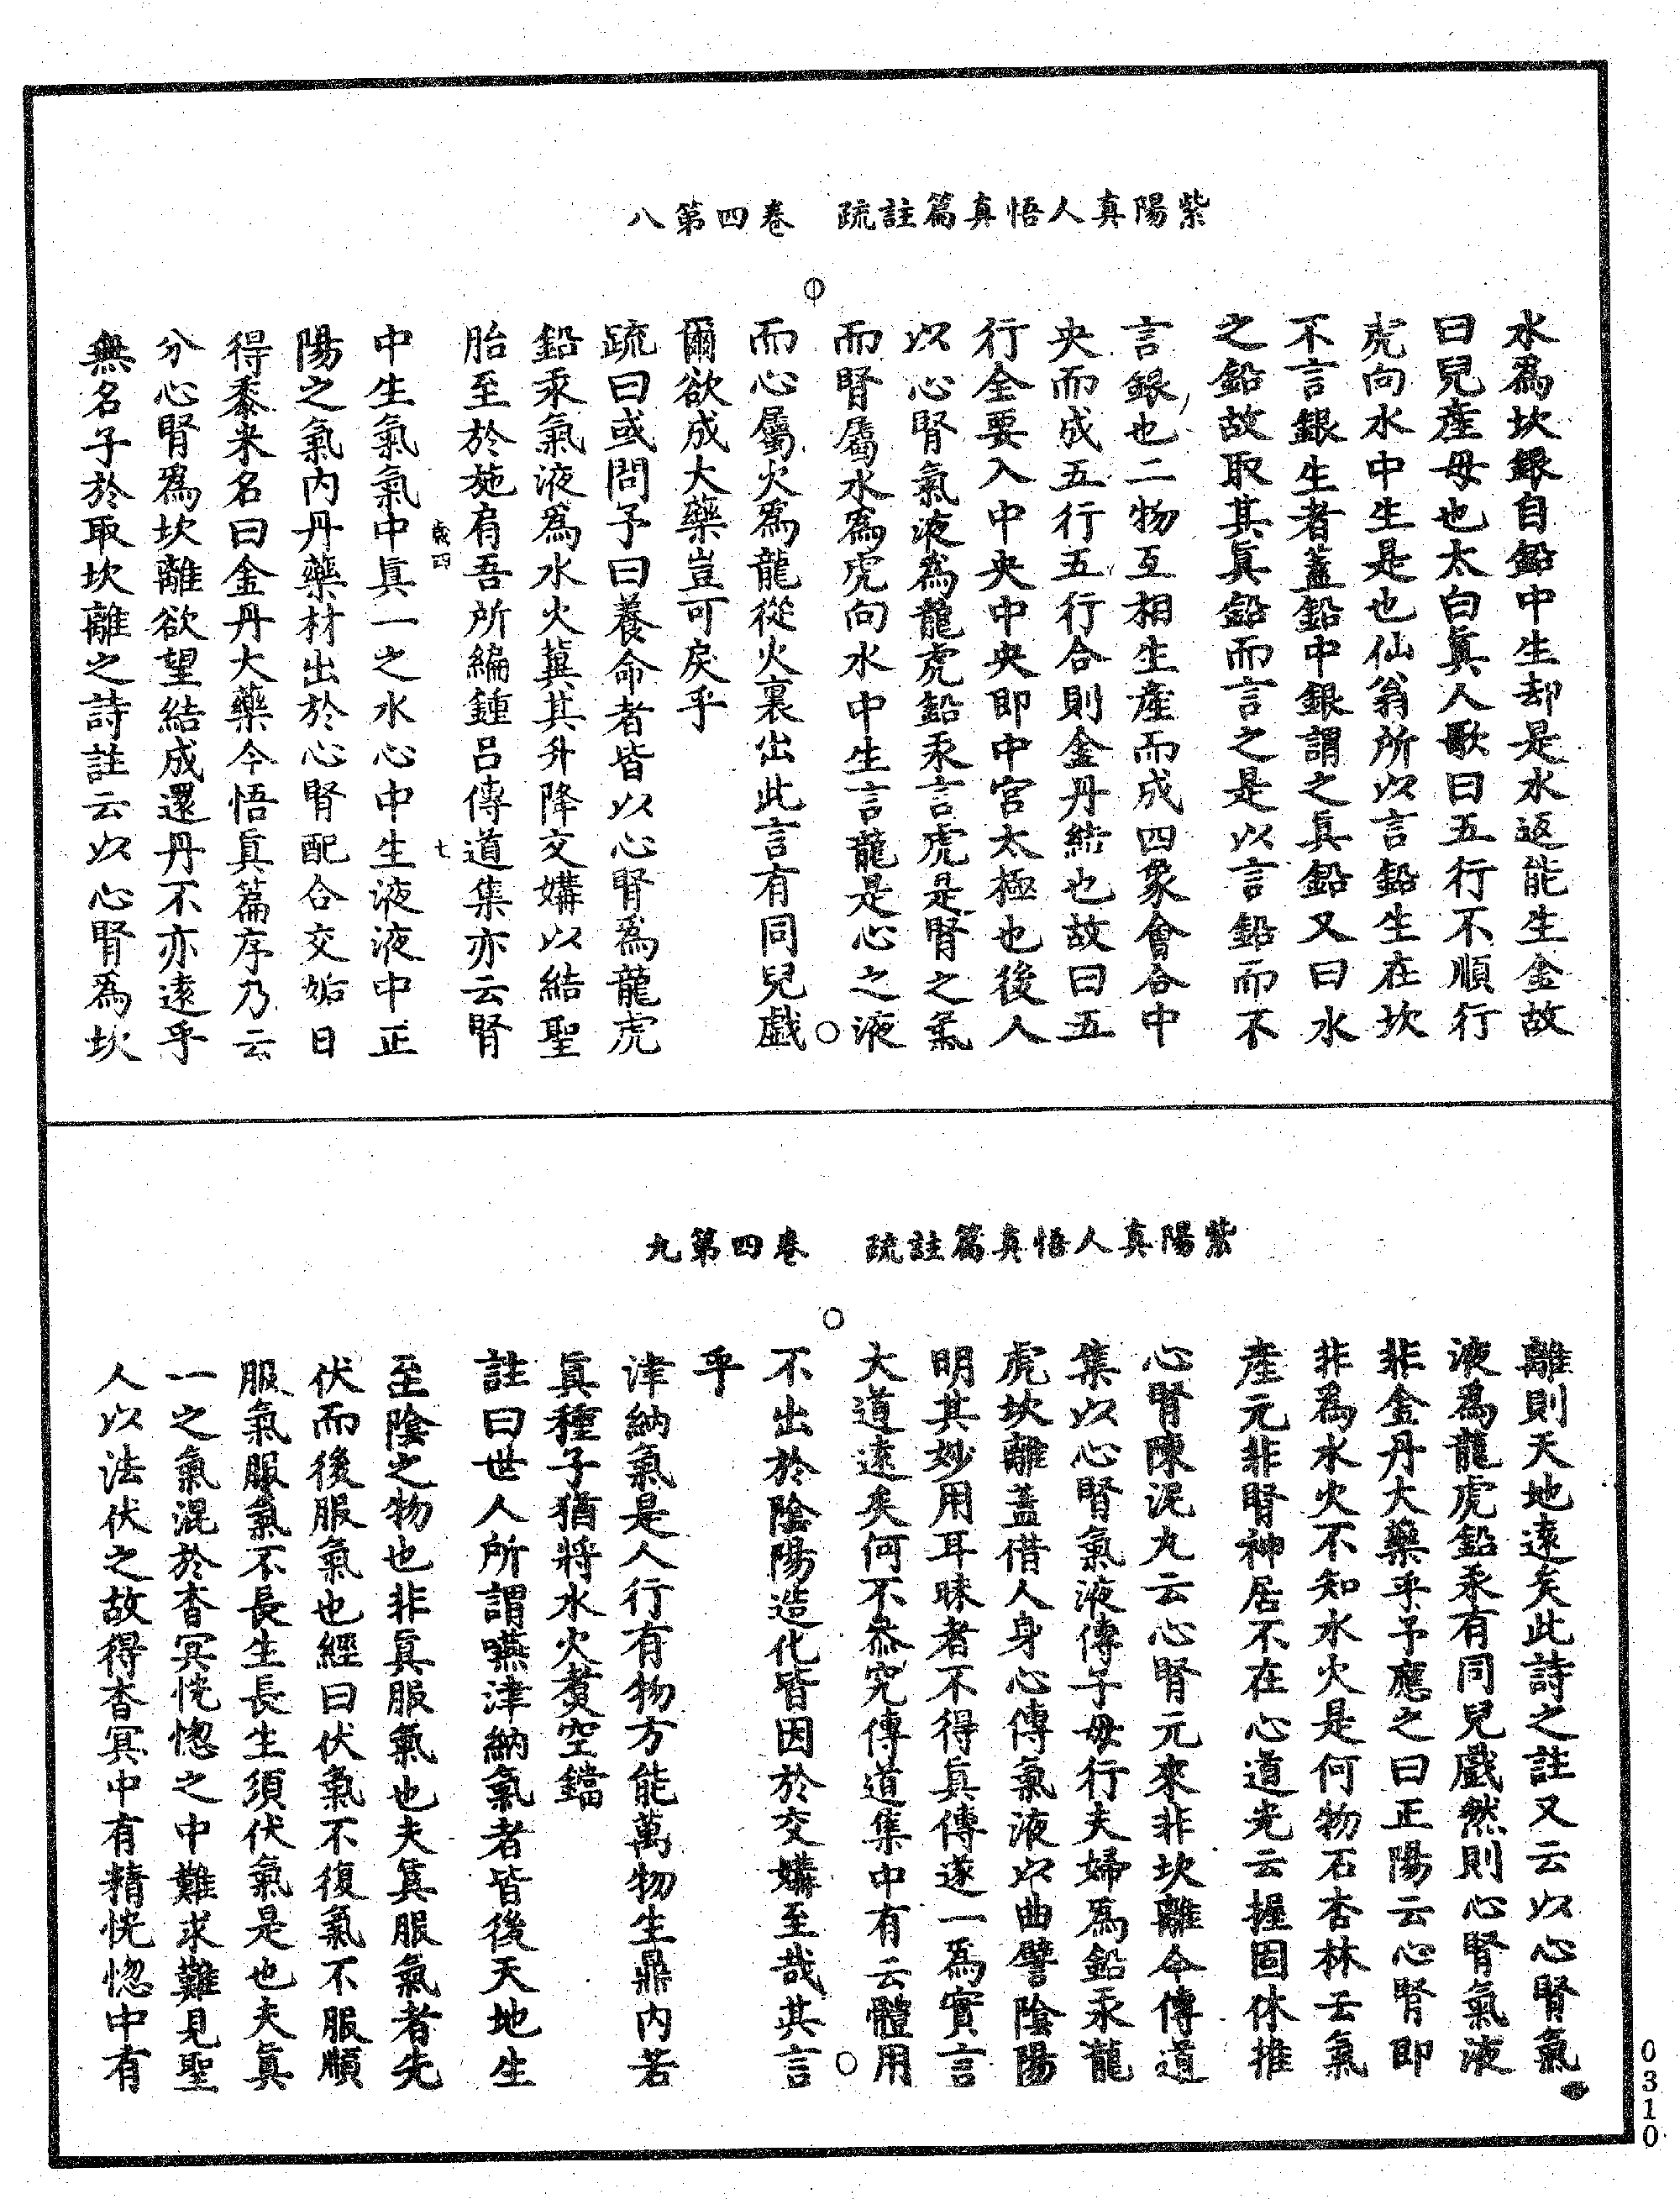 紫陽真人悟真篇註疏　卷四第八
水爲坎銀自鉛中生却是水返能生金故
曰兒產母也太白眞人歌曰五行不順行
虎向水中生是也仙翁所以言鉛生在坎
不言銀生者蓋鉛中銀謂之眞鉛又曰水
之鉛故取其眞鉛而言之是以言鉛而不
言銀也二物互相生產而成四象會合中
央而成五行五行合則金丹結也故曰五
行全要入中央中央即中宮太極也後人
以心腎氣液爲龍虎鉛汞言虎是腎之氣
而腎屬水爲虎向水中生言龍是心之液
而心屬火爲龍從火裏出此言有同兒戲
爾欲成大藥豈可戾乎
疏曰或問予曰養命者皆以心腎爲龍虎
鉛汞氣液爲水火冀其升降交媾以結聖
胎至於施肩吾所編鍾呂傳道集亦云腎
歲四　七
中生氣氣中眞一之水心中生液液中正
陽之氣內丹藥材出於心腎配合交姤日
得黍米名曰金丹大藥今悟眞篇序乃云
分心腎爲坎離欲望結成還丹不亦遠乎
無名子於取坎離之詩註云以心腎爲坎
紫陽真人悟真篇註疏　卷四第九
離則天地遠矣此詩之註又云以心腎氣
液爲龍虎鉛汞有同兒戲然則心腎氣液
非金丹大藥乎予應之曰正陽云心腎即
非爲水火不知水火是何物石杏林云氣
產元非腎神居不在心道光云握固休推
心腎陳泥丸云心腎元來非坎離今傳道
集以心腎氣液傳子母行夫婦爲鉛汞龍
虎坎離蓋借人身心傳氣液以曲譬陰陽
明其妙用耳昧者不得眞傳遂一爲實言
大道遠矣何不叅究傳道集中有云體用
不出於陰陽造化皆因於交媾至哉其言
乎
津納氣是人行有物方能萬物生鼎內若
眞種子猶將水火煑空鐺
註曰世人所謂嚥津納氣者皆後天地生
至陰之物也非眞服氣也夫眞服氣者先
伏而後服氣也經曰伏氣不復氣不服順
服氣服氣不長生長生須伏氣是也夫眞
一之氣混於杳冥恍惚之中難求難見聖
人以法伏之故得杳冥中有精恍惚中有
0310